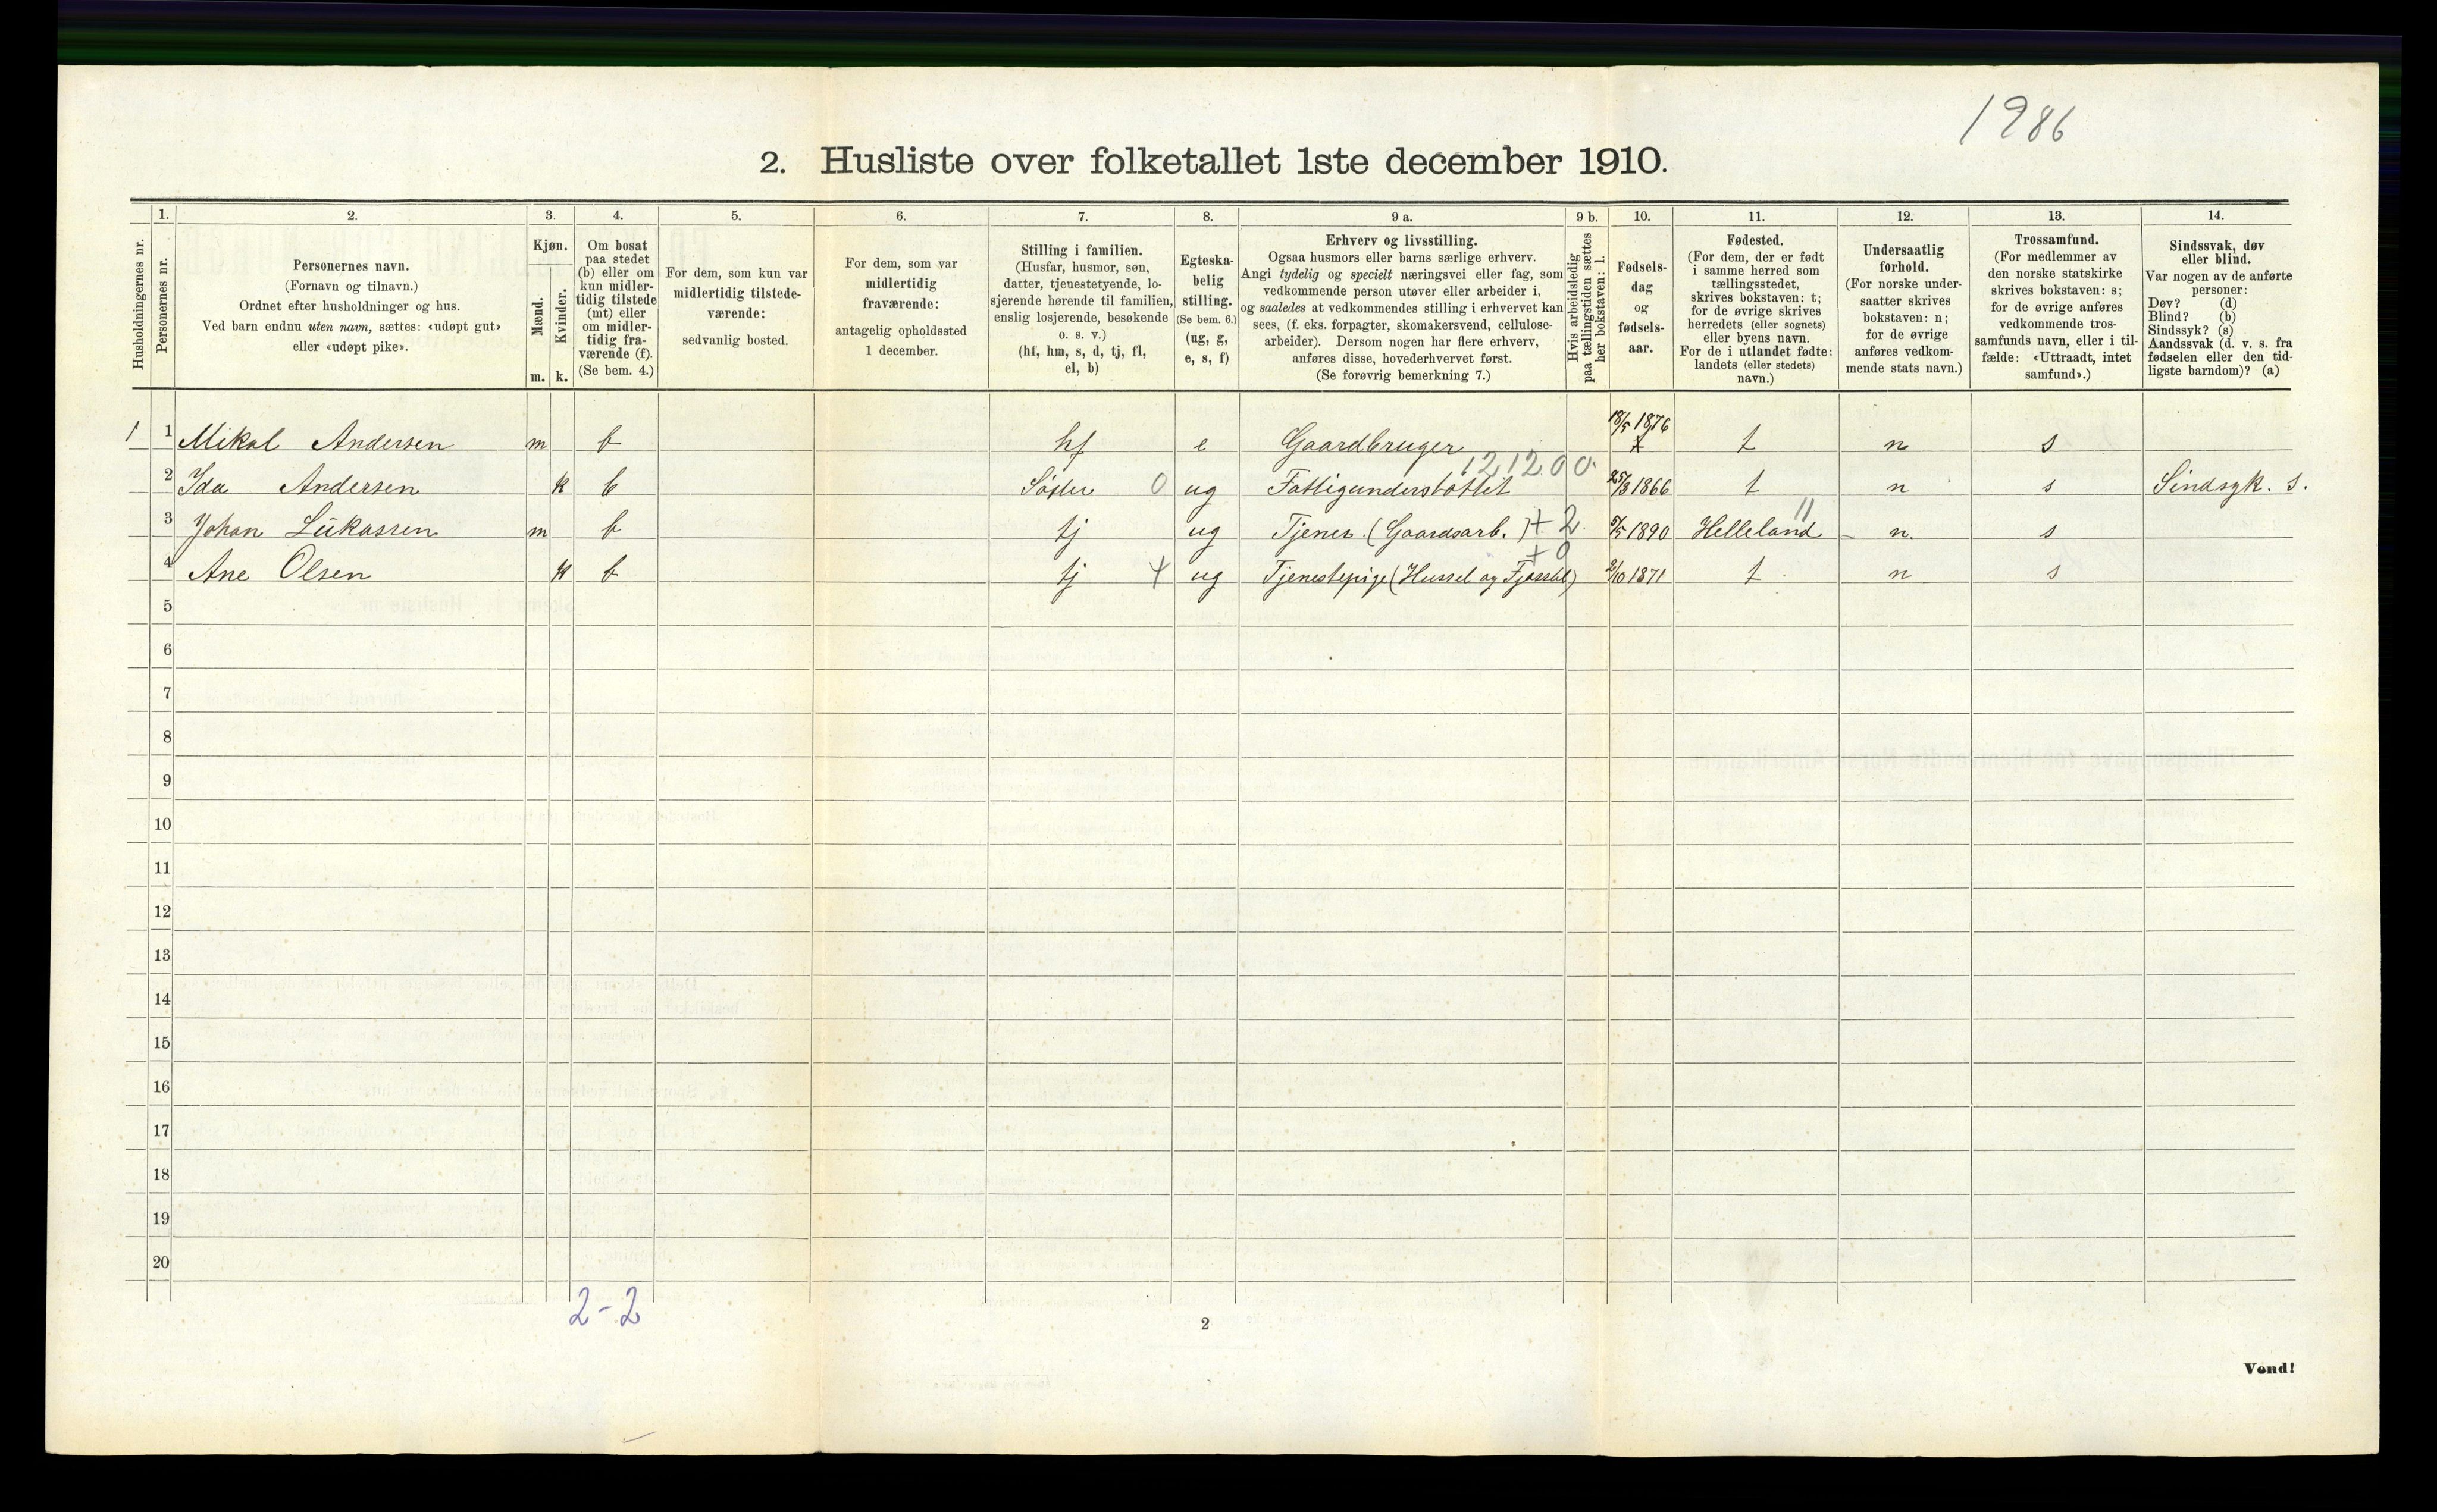 1986
2. Husliste over folketallet 1ste december 1910.
Husholdningernes nr.
1.
Personernes nr.
2.
Personernes navn.
(Fornavn og tilnavn.)
Ordnet efter husholdninger og hus.
Ved barn endnu uten navn, sættes: «udøpt gut»
eller «udøpt pike».
3.
Kjøn.
Mænd.
Kvinder.
m. k.
4.
Om bosat
paa stedet
(b) eller om
kun midler-
tidig tilstede
(mt) eller
om midler-
tidig fra-
værende (f).
(Se bem. 4.)
5.
For dem, som kun var
midlertidig tilstede-
værende:
sedvanlig bosted.
6.
For dem, som var
midlertidig
fraværende:
antagelig opholdssted
1 december.
7.
Stilling i familien.
(Husfar, husmor, søn,
datter, tjenestetyende, lo-
sjerende hørende til familien,
enslig losjerende, besøkende
o. s. v.)
(hf, hm, s, d, tj, fl,
el, b)
8.
Egteska-
belig
stilling.
(Se bem. 6.)
(ug, g,
e, s, f)
9 a.
Erhverv og livsstilling.
Ogsaa husmors eller barns særlige erhverv.
Angi tydelig og specielt næringsvei eller fag, som
vedkommende person utøver eller arbeider i,
og saaledes at vedkommendes stilling i erhvervet kan
sees, (f. eks. forpagter, skomakersvend, cellulose-
arbeider). Dersom nogen har flere erhverv,
anføres disse, hovederhvervet først.
(Se forøvrig bemerkning 7.)
9 b.
Hvis arbeidsledig
paa tællingstiden sættes
her bokstaven: l.
10.
Fødsels-
dag
og
fødsels-
aar.
11.
Fødested.
(For dem, der er født
i samme herred som
tællingsstedet,
skrives bokstaven: t;
for de øvrige skrives
herredets (eller sognets)
eller byens navn.
For de i utlandet fødte:
landets (eller stedets)
navn.)
12.
Undersaatlig
forhold.
(For norske under-
saatter skrives
bokstaven: n;
for de øvrige
anføres vedkom-
mende stats navn.)
13.
Trossamfund.
(For medlemmer av
den norske statskirke
skrives bokstaven: s;
for de øvrige anføres
vedkommende tros-
samfunds navn, eller i til-
fælde: «Uttraadt, intet
samfund».)
14.
Sindssvak, døv
eller blind.
Var nogen av de anførte
personer:
Døv? (d)
Blind? (b)
Sindssyk? (s)
Aandssvak (d. v. s. fra
fødselen eller den tid-
ligste barndom)? (a)
1 1 Mikal Andersen m b hf e Gaardbruger 18/5 1876 t n s
121200.
2 Ida Andersen k b Søster 0 ug Fattigunderstøttet 25/3 1866 t n s Sindsyk. s.
11
3 Johan Lukassen m b tj ug Tjener (Gaardsarb.) + 2 5/5 1890 Helleland n. s
+ 0
4 Ane Olsen k b tj ug Tjenestepige (Hussel og Fjøsstel) 2/10 1871 t n s
5
6
7
8
9
10
11
12
13
14
15
16
17
18
19
20
2-2
2
Vend!